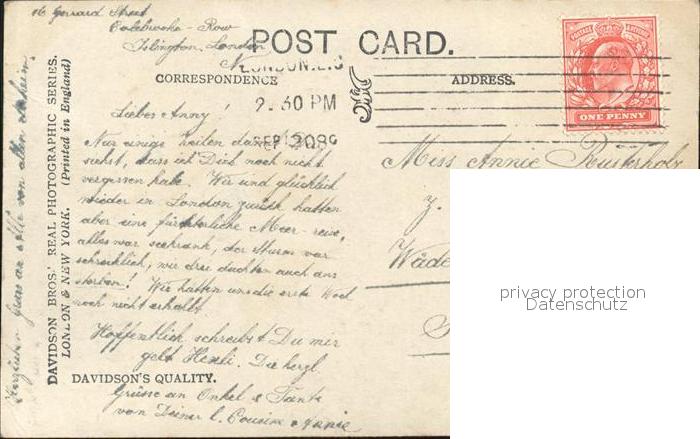 16 Gerrard Street
Colebrooke - Row
Islington, London
N.
POST CARD.
LONDON.E.C
2.30 PM
SEP 20 09
CORRESPONDENCE
ADDRESS.
ONE PENNY
DAVIDSON BROS.' REAL PHOTOGRAPHIC SERIES.
LONDON & NEW YORK. (Printed in England)
Lieber Anny!
Nur einige Zeilen damit Du
siehst, dass ich Dich noch nicht
vergessen habe. Wir sind glücklich
wieder in London zurück hatten
aber eine fürchterliche Meer - reise,
alles war seekrank, der Sturm war
schrecklich, wir drei dachten auch ans
sterben! Wir hatten uns die erste Woch
noch nicht erholt.
Hoffentlich schreibst Du mir
gelt Die herzl.
Grüsse an Onkel & Tante
von Deiner l. Cousine Annie
DAVIDSON'S QUALITY.
Grüsse an alle von allen
Miss Annie Rusterholz
z.
Wäde
privacy protection
Datenschutz